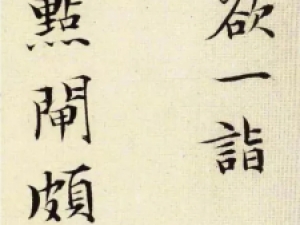 欲一詣
點閘頗